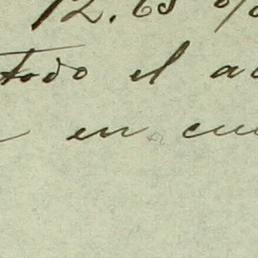 12.68 %
todo el a
en cu